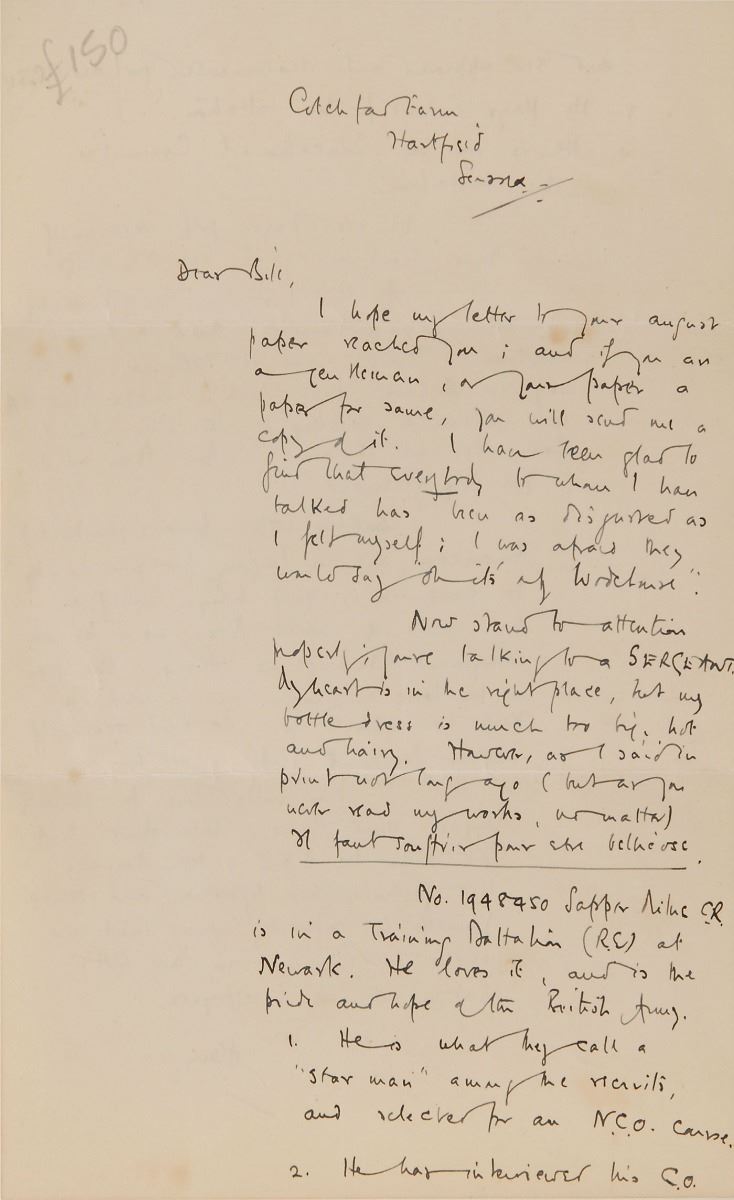 £150
Cotchford Farm
Hartfield
Sussex
Dear Bill,
I hope my letter to your august
paper reached you; and if you are
a gentleman, or your paper a
paper for same, you will send me a
copy of it. I have been glad to
find that everybody to whom I have
talked has been as disgusted as
I felt myself; I was afraid they
would say "oh it's only Wodehouse".
Now stand to attention
properly; you're talking to a SERGEANT.
My heart is in the right place, but my
battle dress is much too big, hot
and hairy. However, as I said in
print not long ago (but as you
never read my works, no matter)
Il faut souffrir pour etre bellicose.
No. 1948450 Sapper Milne C.R.
is in a Training Battalion (R.E) at
Newark. He loves it, and is the
pride and hope of the British Army.
1. He is what they call a
"star man" among the recruits,
and selected for an N.C.O. course.
2. He has interviewed his C.O.